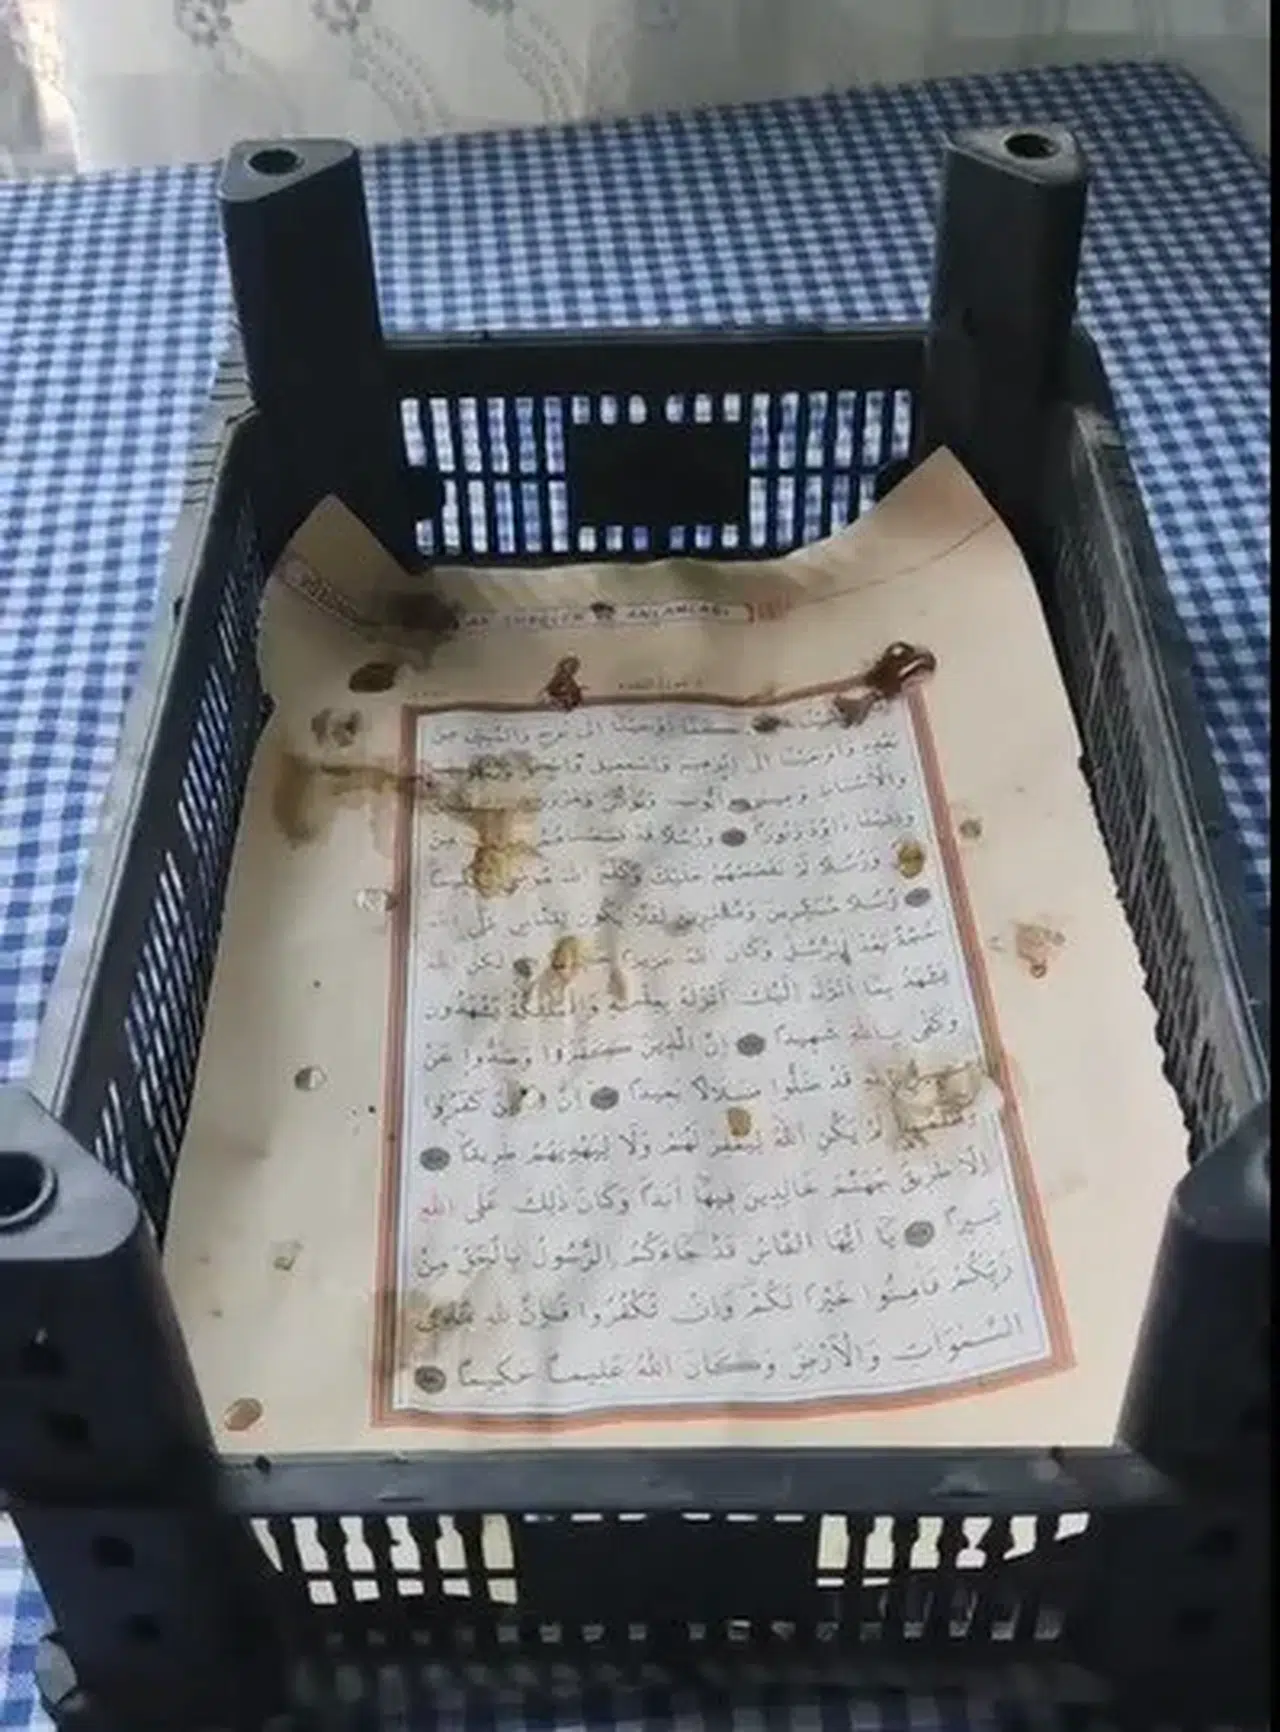 كَمَا اَوْحَيْنَا اِلٰى نُوحٍ وَالنَّبِيّنَ مِنْ
بَعْدِهِ وَاَوْحَيْنَا اِلٰى اِبْرٰهِيمَ وَاِسْمٰعِيلَ وَاِسْحٰقَ
وَالْاَسْبَاطِ وَعِيسٰى وَاَيُّوبَ وَيُونُسَ وَهٰرُونَ
وَاٰتَيْنَا دَاوُدَ زَبُورًا وَرُسُلًا قَدْ قَصَصْنَاهُمْ مِنْ
وَرُسُلًا لَمْ نَقْصُصْهُمْ عَلَيْكَ وَكَلَّمَ اللّٰهُ مُوسٰى تَكْلِيمًا
رُسُلًا مُبَشِّرِينَ وَمُنْذِرِينَ لِئَلَّا يَكُونَ لِلنَّاسِ عَلَى اللّٰهِ
حُجَّةٌ بَعْدَ الرُّسُلِ وَكَانَ اللّٰهُ عَزِيزًا لٰكِنِ اللّٰهُ
يَشْهَدُ بِمَا اَنْزَلَ اِلَيْكَ اَنْزَلَهُ بِعِلْمِهِ وَالْمَلٰئِكَةُ يَشْهَدُونَ
وَكَفٰى بِاللّٰهِ شَهِيدًا اِنَّ الَّذِينَ كَفَرُوا وَصَدُّوا عَنْ
قَدْ ضَلُّوا ضَلَالًا بَعِيدًا اِنَّ كَفَرُوا
وَظَلَمُوا لَمْ يَكُنِ اللّٰهُ لِيَغْفِرَ لَهُمْ وَلَا لِيَهْدِيَهُمْ طَرِيقًا
اِلَّا طَرِيقَ جَهَنَّمَ خَالِدِينَ فِيهَا اَبَدًا وَكَانَ ذٰلِكَ عَلَى اللّٰهِ
يَسِيرًا يَا اَيُّهَا النَّاسُ قَدْ جَاءَكُمُ الرَّسُولُ بِالْحَقِّ مِنْ
رَبِّكُمْ فَاٰمِنُوا خَيْرًا لَكُمْ وَاِنْ تَكْفُرُوا فَاِنَّ لِلّٰهِ مَا فِى
السَّمٰوَاتِ وَالْاَرْضِ وَكَانَ اللّٰهُ عَلِيمًا حَكِيمًا